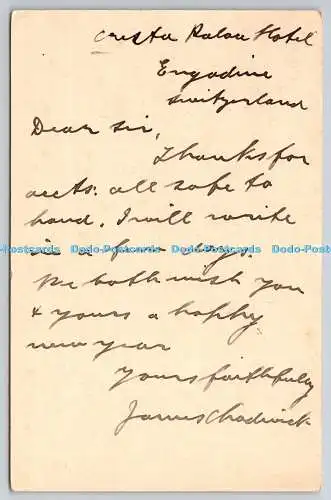 Cresta Palace Hotel
Engadine
Switzerland
Dear Sir,
Thanks for
accts: all safe to
hand. I will write
in a few days.
Dodo-Postcards Dodo-Postcards Dodo-Postcards Dodo-Postcards Dodo-Postcards
We both wish you
& yours a happy
new year
Yours faithfully
James Chadwick